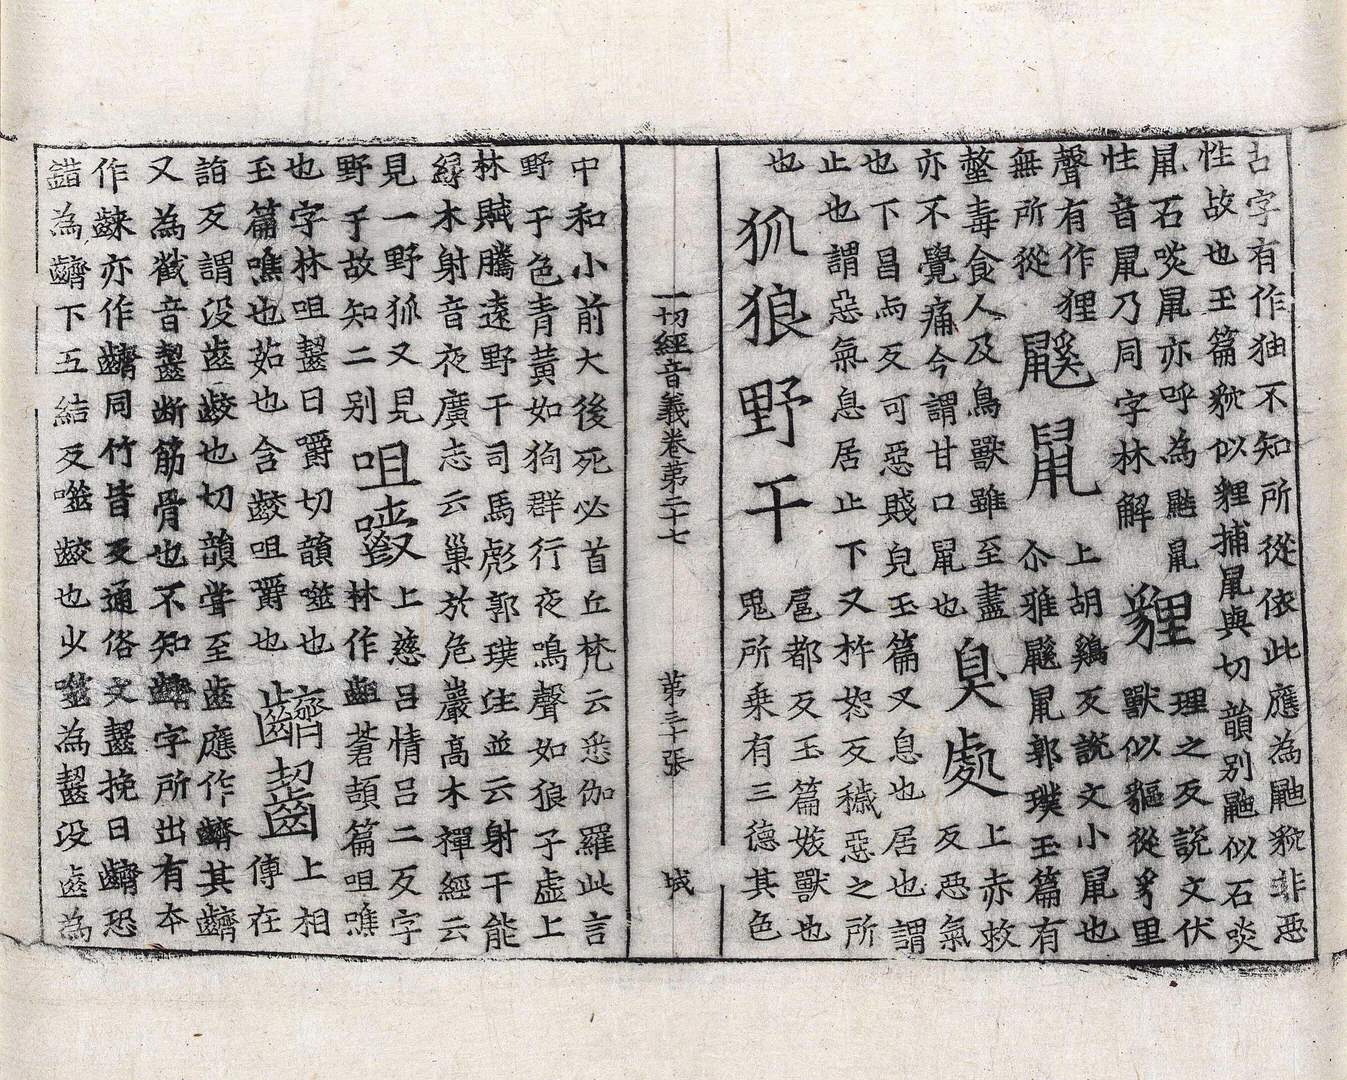 古字有作㹨不知所從依此應為鼬貁非恶
性故也玉篇貁似貍捕鼠與切韻別鼬似石啖
鼠石啖鼠亦呼為鼬鼠
性音鼠乃同字林解
貍
理之反說文伏
獸似貙從豸里
聲有作狸
無所從
鼷鼠
上胡鷄反說文小鼠也
尒雅鼷鼠郭璞玉篇有
螫毒食人及鳥獸雖至盡
亦不覺痛今謂甘口鼠也
臭處
上赤救
反恶氣
也下昌反可惡賤皃玉篇又息也居也謂
止也謂惡氣息居止下又杵恕反穢惡之所
也
狐狼野干
扈都反玉篇妖獸也
鬼所乗有三德其色
一切經音義卷第二十七
第三十張
城
中和小前大後死必首丘梵云悉伽羅此言
野干色青黃如狗群行夜鳴聲如狼子虛上
林賦騰遠野干司馬彪郭璞注並云射干能
緣木射音夜廣志云巢於危巖高木禪經云
見一野狐又見
野干故知二別
咀
上慈吕情吕二反字
林作蒼頡篇咀噍
也字林咀齧曰嚼切韻噬也
玉篇噍也茹也含齩咀嚼也
齧
上相
傳在
詣反謂没齒齩也切韻甞至齒應作其
又為音齧断筋骨也不知字所出有本
作亦作同竹皆反通俗文齧挽曰恐
錯為下五結反噬齩也少噬為齧没齒為